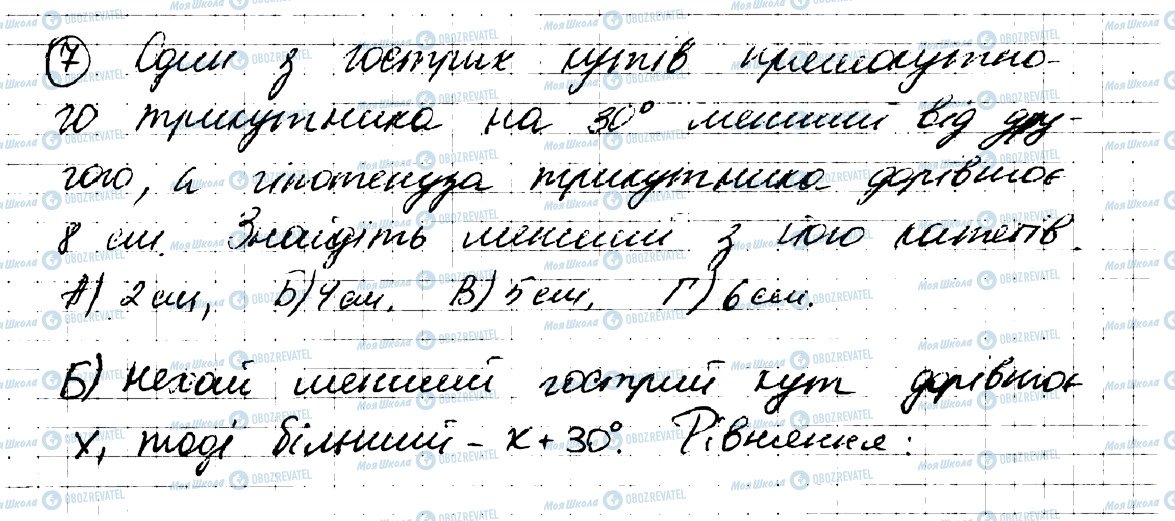 7 Один з гострих кутів прямокутно-
го трикутника на 30° менший від дру-
гого, а гіпотенуза трикутника дорівнює
8 см. Знайдіть менший з його катетів.
А) 2 см, Б) 4 см, В) 5 см, Г) 6 см.
Б) Нехай менший гострий кут дорівнює
х, тоді більший – х + 30°. Рівняння: